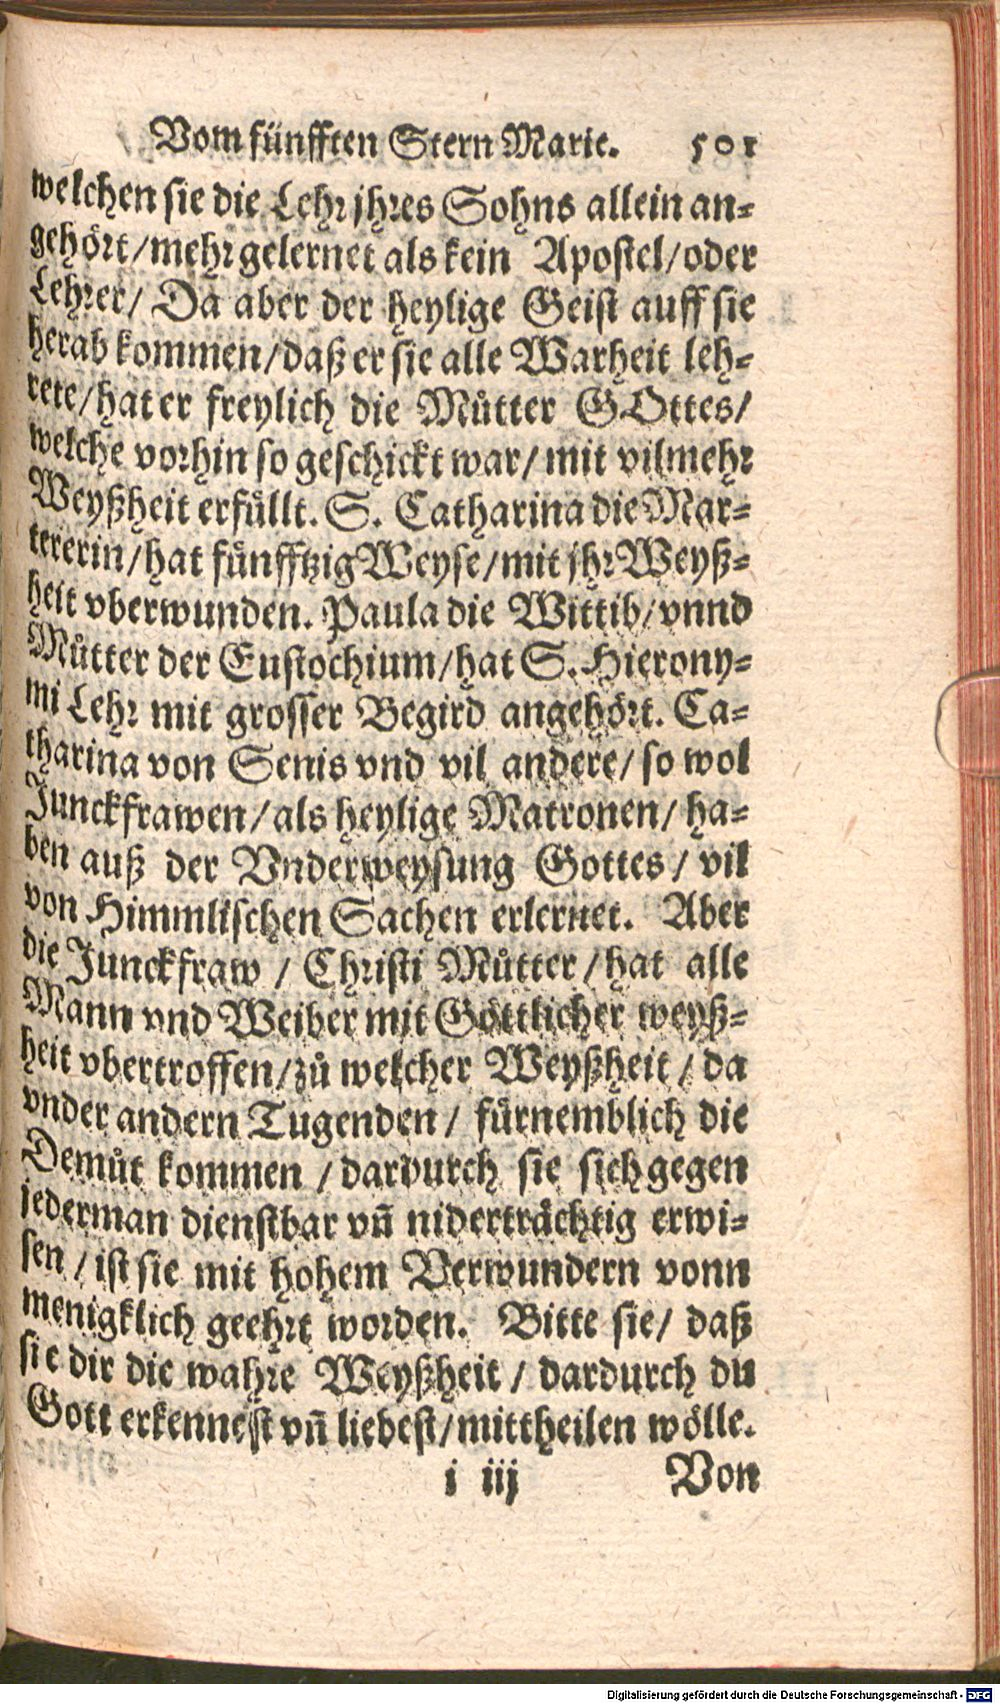 Vom fünfften Stern Marie. 501
welchen sie die Lehr jhres Sohns allein an-
gehört/mehr gelernet als kein Apostel/oder
Lehrer/ Da aber der heylige Geist auff sie
herab kommen/daß er sie alle Warheit leh-
rete/hat er freylich die Můtter GOttes/
welche vorhin so geschickt war/ mit vilmehr
Weyßheit erfüllt. S. Catharina die Mar-
tererin/hat fünfftzig Weyse/mit jhr Weyß-
heit vberwunden. Paula die Wittib/vnnd
Můtter der Eustochium/hat S. Hierony-
mi Lehr mit grosser Begird angehört. Ca-
tharina von Senis vnd vil andere/ so wol
Junckfrawen/als heylige Matronen/ ha-
ben auß der Vnderweysung Gottes/ vil
von Himmlischen Sachen erlernet. Aber
die Junckfraw / Christi Můtter/hat alle
Mann vnd Weiber mit Göttlicher weyß-
heit vbertroffen/zů welcher Weyßheit / da
vnder andern Tugenden/ fürnemblich die
Demůt kommen /dardurch sie sich gegen
jederman dienstbar vñ niderträchtig erwi-
sen / ist sie mit hohem Verwundern vonn
menigklich geehrt worden. Bitte sie/ daß
sie dir die wahre Weyßheit / dardurch du
Gott erkennest vñ liebest/mittheilen wölle.
i iij Von
Digitalisierung gefördert durch die Deutsche Forschungsgemeinschaft - DFG